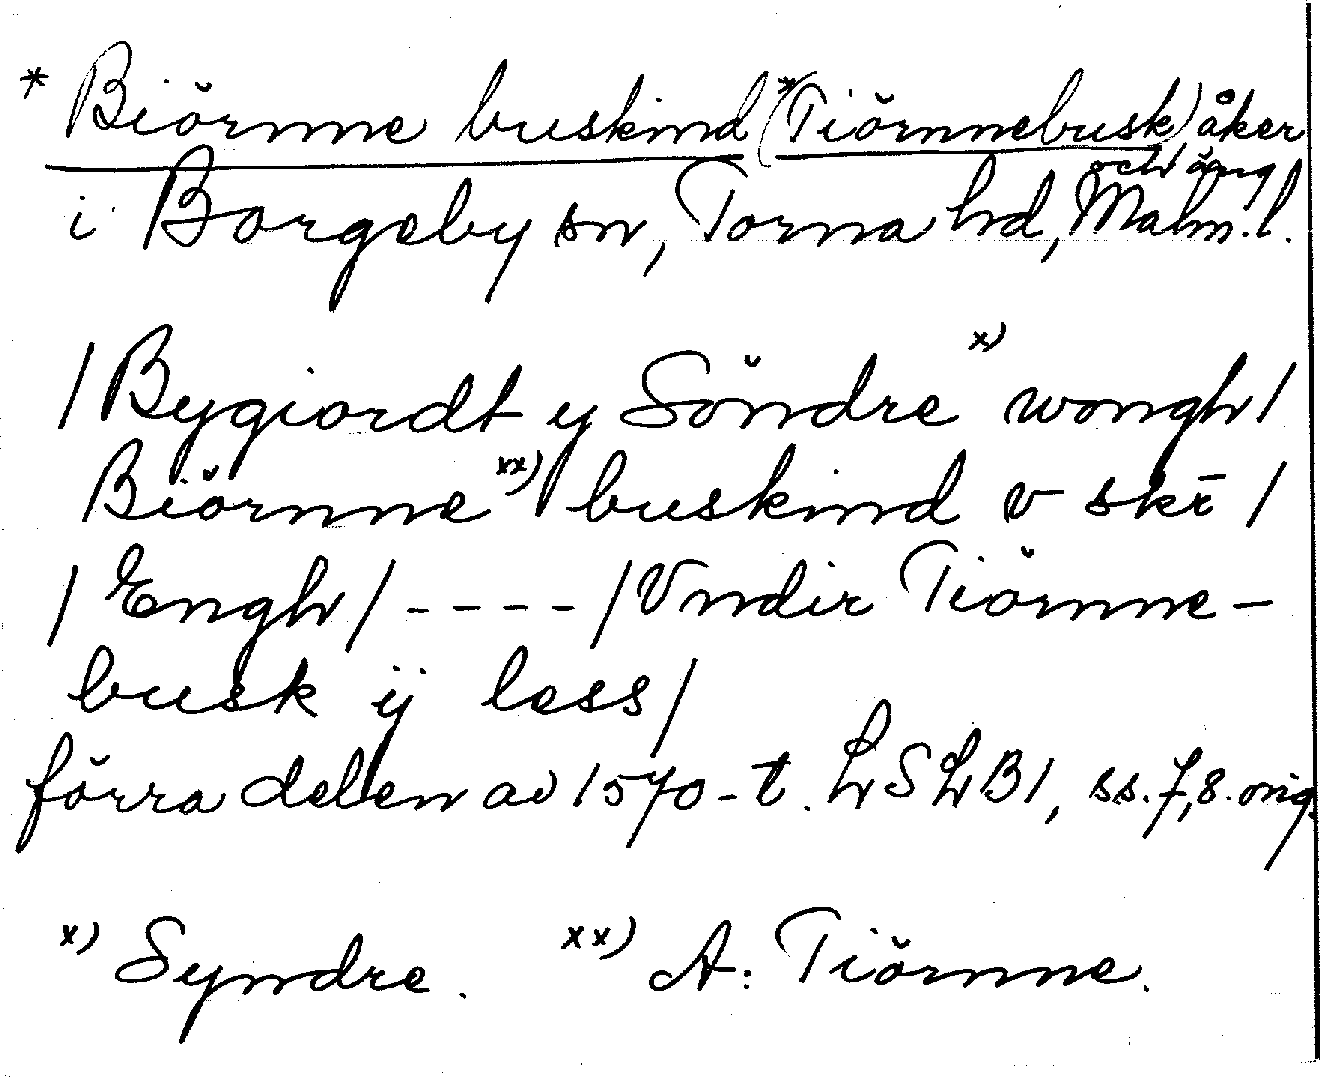 * Biörnne buskind (*Tiörnnebusk) åker
och äng
i Borgeby sn, Torna hd, Malm. l.
/Bygiordt y Söndre x) wongh/
Biörnne xx) buskind v skē /
/Engh/ - - - - /Vndir Tiörnne-
busk ij less/
förra delen av 1570-t. LSLB1, ss. 7, 8. orig.
x) Syndre. xx) A: Tiörnne.